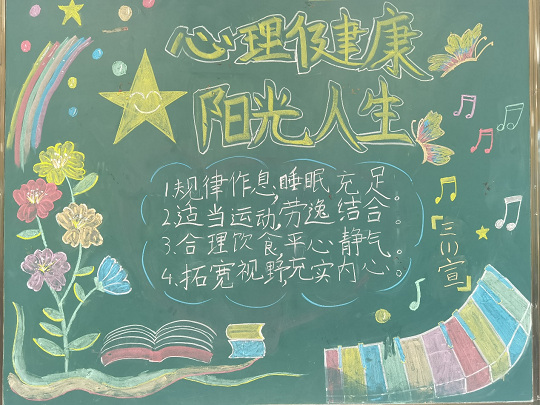 心理健康
阳光人生
1.规律作息,睡眠充足。
2.适当运动,劳逸结合。
3.合理饮食,平心静气。
4.拓宽视野,充实内心。
『三(1)宣』